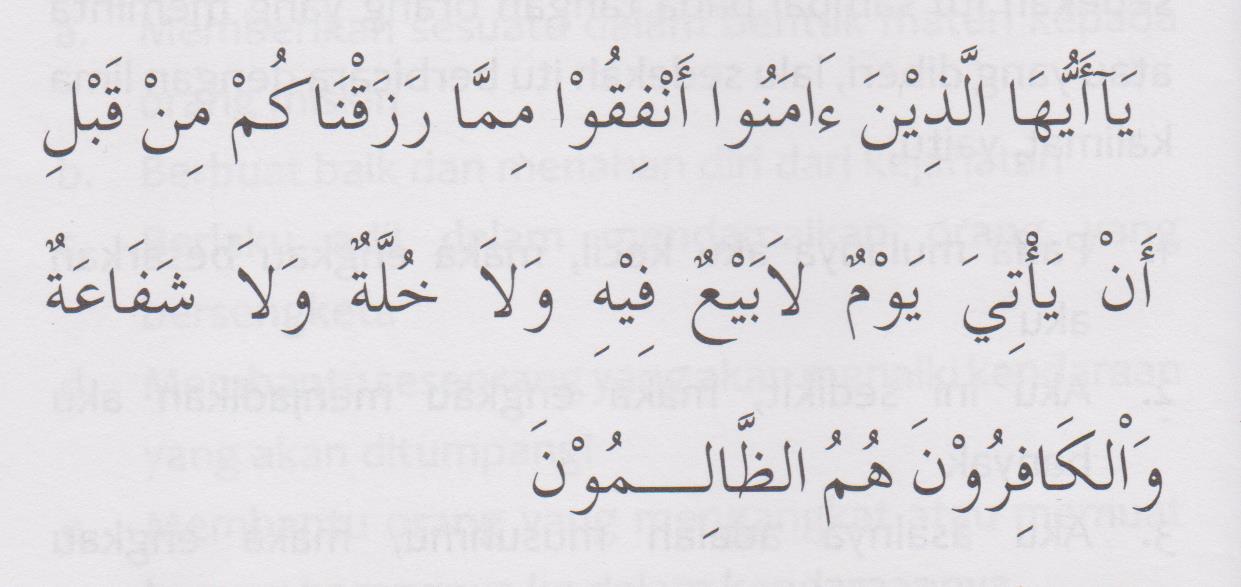 يَآأَيُّهَا الَّذِيْنَ ءَامَنُوا أَنْفِقُوْا مِمَّا رَزَقْنَاكُم مِنْ قَبْلِ
أَنْ يَأْتِيَ يَوْمٌ لاَبَيْعٌ فِيْهِ وَلاَ خُلَّةٌ وَلاَ شَفَاعَةٌ
وَاْلكَافِرُوْنَ هُمُ الظَّالِـــمُوْنَ